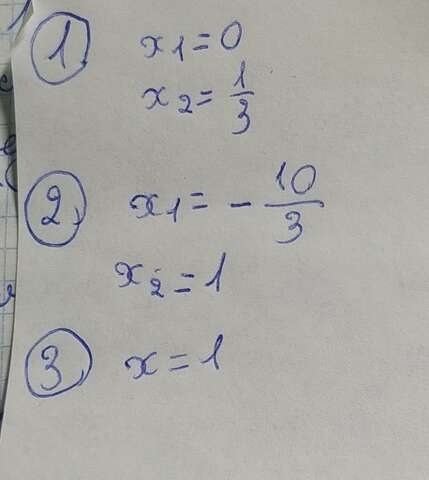 1 x1=0
x2=1/3
2 x1=-10/3
x2=1
3 x=1